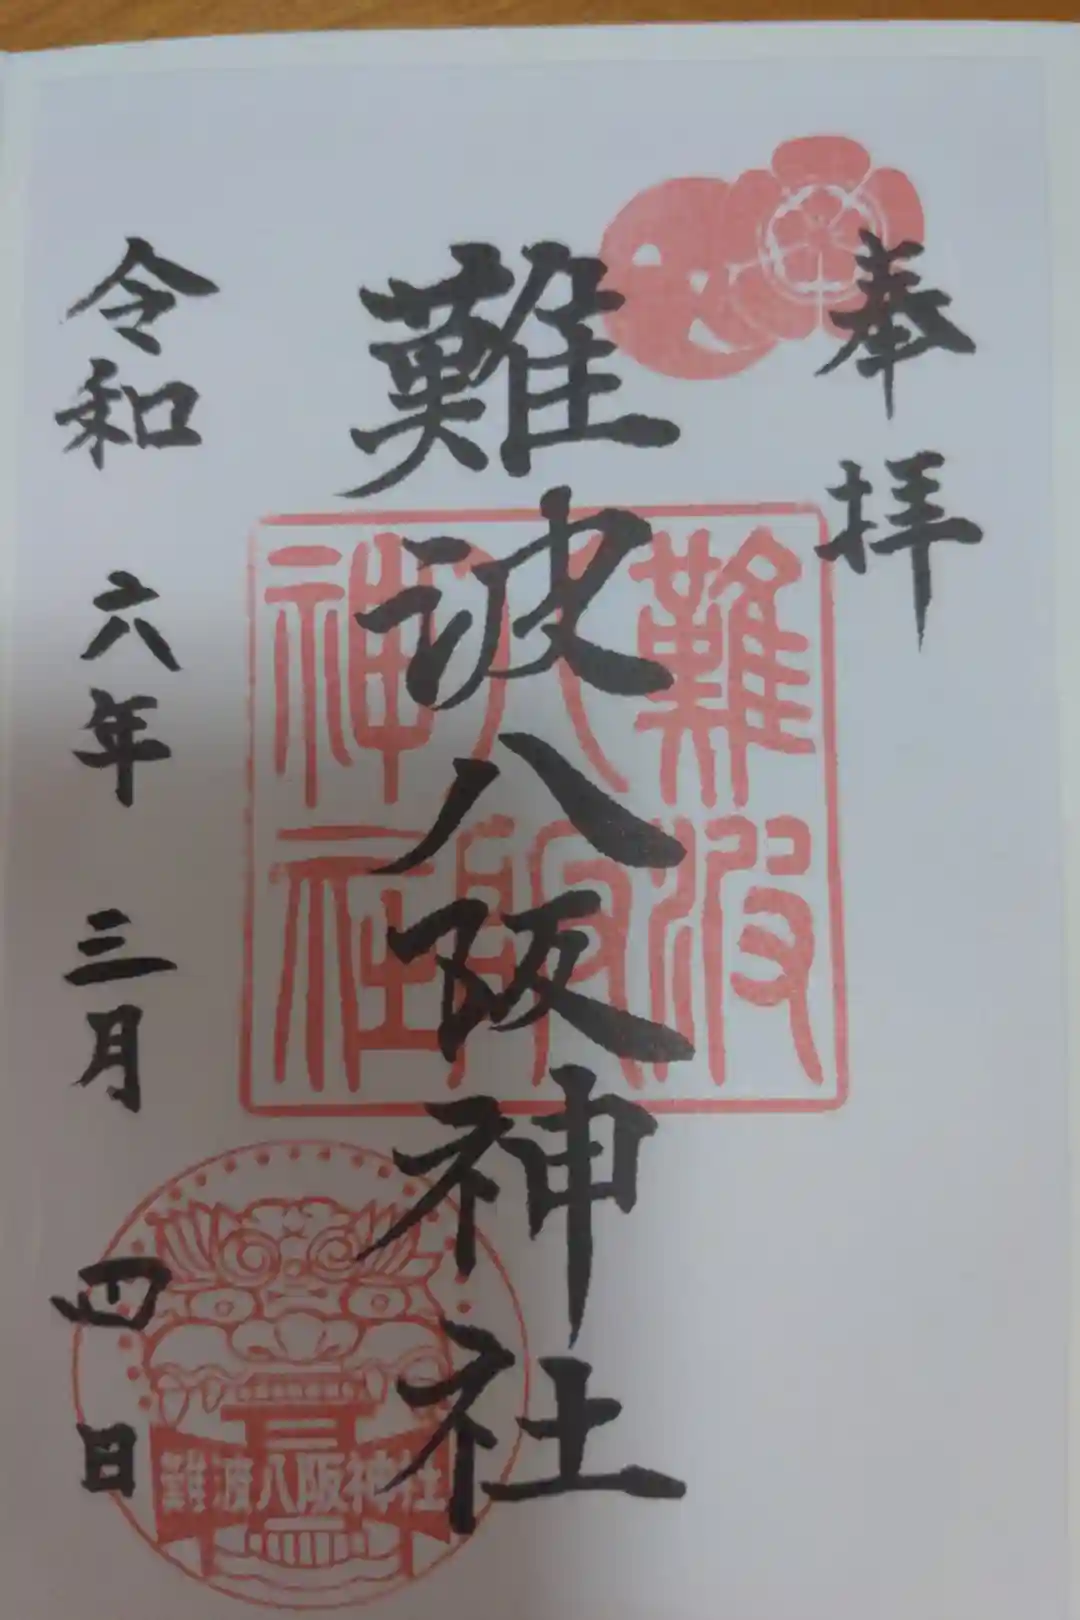 奉拝
難波八阪神社
難波八阪神社
令和六年三月四日
難波八阪神社